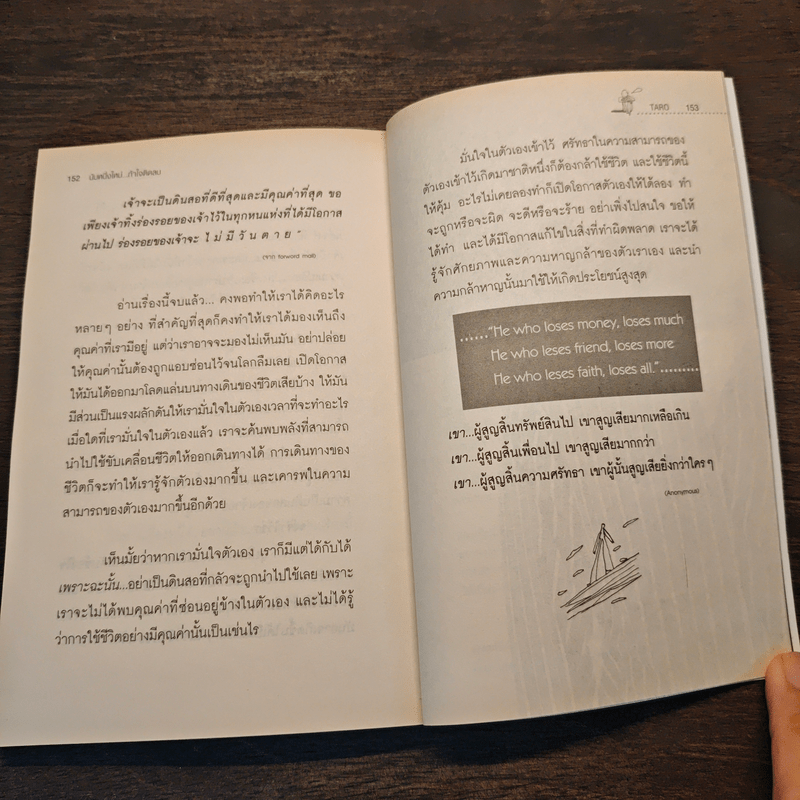 152 นับหนึ่งใหม่...ถ้าใจติดลบ
เจ้าจะเป็นดินสอที่ดีที่สุดและมีคุณค่าที่สุด ขอ
เพียงเจ้าทิ้งร่องรอยของเจ้าไว้ในทุกหนแห่งที่ได้มีโอกาส
ผ่านไป ร่องรอยของเจ้าจะ ไ ม่ มี วั น ต า ย "
(จาก forword mail)
อ่านเรื่องนี้จบแล้ว... คงพอทำให้เราได้คิดอะไร
หลายๆ อย่าง ที่สำคัญที่สุดก็คงทำให้เราได้มองเห็นถึง
คุณค่าที่เรามีอยู่ แต่ว่าเราอาจจะมองไม่เห็นมัน อย่าปล่อย
ให้คุณค่านั้นต้องถูกแอบซ่อนไว้จนโลกลืมเลย เปิดโอกาส
ให้มันได้ออกมาโลดแล่นบนทางเดินของชีวิตเสียบ้าง ให้มัน
มีส่วนเป็นแรงผลักดันให้เรามั่นใจในตัวเองเวลาที่จะทำอะไร
เมื่อใดที่เรามั่นใจในตัวเองแล้ว เราจะค้นพบพลังที่สามารถ
นำไปใช้ขับเคลื่อนชีวิตให้ออกเดินทางได้ การเดินทางของ
ชีวิตก็จะทำให้เรารู้จักตัวเองมากขึ้น และเคารพในความ
สามารถของตัวเองมากขึ้นอีกด้วย
เห็นมั้ยว่าหากเรามั่นใจตัวเอง เราก็มีแต่ได้กับได้
เพราะฉะนั้น...อย่าเป็นดินสอที่กลัวจะถูกนำไปใช้เลย เพราะ
เราจะไม่ได้พบคุณค่าที่ซ่อนอยู่ข้างในตัวเอง และไม่ได้รู้
ว่าการใช้ชีวิตอย่างมีคุณค่านั้นเป็นเช่นไร
TARO 153
มั่นใจในตัวเองเข้าไว้ ศรัทธาในความสามารถของ
ตัวเองเข้าไว้เกิดมาชาติหนึ่งก็ต้องกล้าใช้ชีวิต และใช้ชีวิตนี้
ให้คุ้ม อะไรไม่เคยลองทำก็เปิดโอกาสตัวเองให้ได้ลอง ทำ
จะถูกหรือจะผิด จะดีหรือจะร้าย อย่าเพิ่งไปสนใจ ขอให้
ได้ทำ และได้มีโอกาสแก้ไขในสิ่งที่ทำผิดพลาด เราจะได้
รู้จักศักยภาพและความหาญกล้าของตัวเราเอง และนำ
ความกล้าหาญนั้นมาใช้ให้เกิดประโยชน์สูงสุด
......"He who loses money, loses much
He who leses friend, loses more
He who leses faith, loses all.".........
เขา...ผู้สูญสิ้นทรัพย์สินไป เขาสูญเสียมากเหลือเกิน
เขา...ผู้สูญสิ้นเพื่อนไป เขาสูญเสียมากกว่า
เขา...ผู้สูญสิ้นความศรัทธา เขาผู้นั้นสูญเสียยิ่งกว่าใครๆ
(Anonymous)